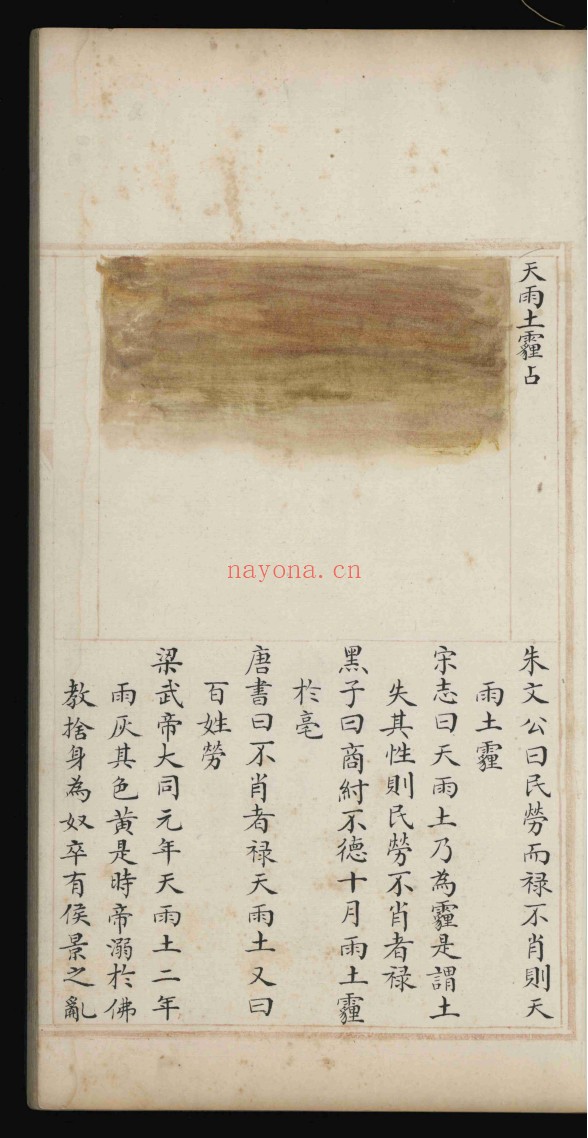 天雨土霾占
朱文公曰民勞而禄不肖則天
雨土霾
宋志曰天雨土乃為霾是謂土
失其性則民勞不肖者禄
黑子曰商紂不德十月雨土霾
於亳
唐書曰不肖者禄天雨土又曰
百姓勞
梁武帝大同元年天雨土二年
雨灰其色黄是時帝溺於佛
教捨身為奴卒有侯景之亂
nayona.cn